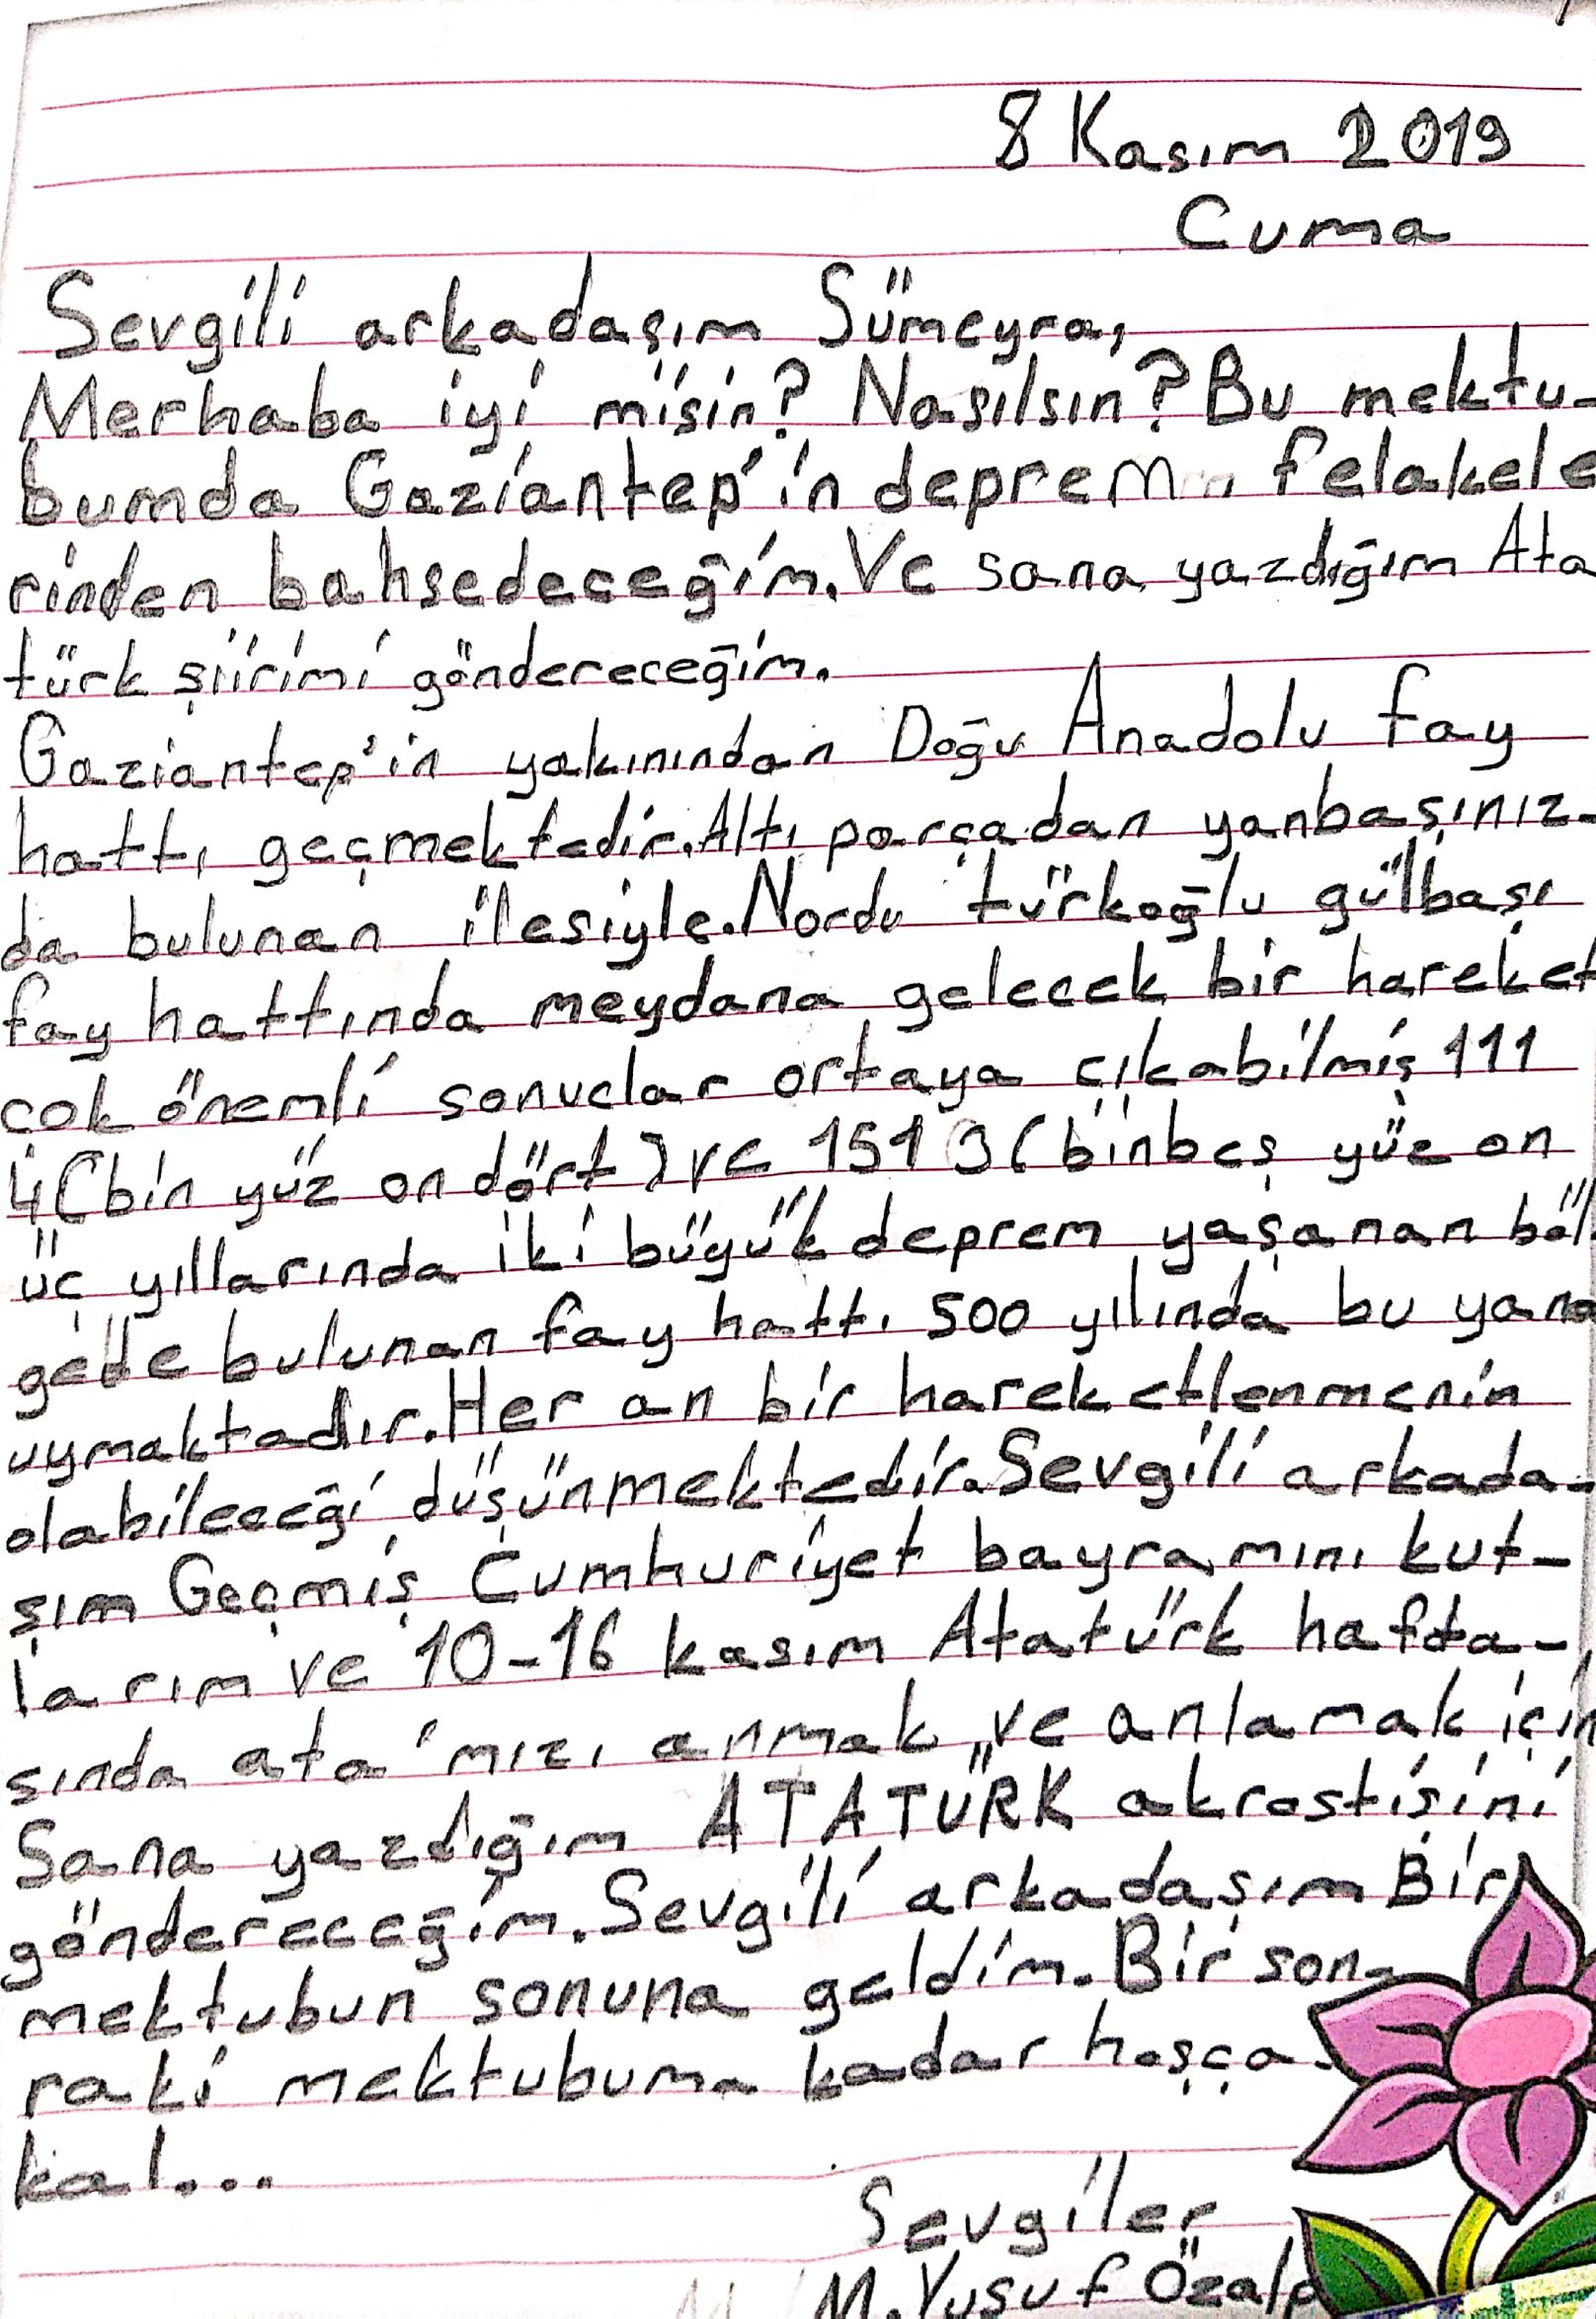 8 Kasım 2019
Cuma
Sevgili arkadaşım Sümeyra,
Merhaba iyi misin? Nasılsın? Bu mektu-
bumda Gaziantep'in deprem felakele
rinden bahsedeceğim. Ve sana yazdığım Ata
türk şiirimi göndereceğim.
Gaziantep'in yakınından Doğu Anadolu fay
hattı geçmektedir. Altı parçadan yanbaşınız-
da bulunan ilesiyle. Nordu türkoğlu gülbaşı
fay hattında meydana gelecek bir hareket
çok önemli sonuclar ortaya çıkabilmiş 111
4 (bin yüz on dört) ve 1513 (binbeş yüz on
üç yıllarında iki büyük deprem yaşanan böl
gede bulunan fay hattı 500 yılında bu yana
uymaktadır. Her an bir hareketlenmenin
olabileceği düşünmektedir. Sevgili arkada-
şım Geçmiş Cumhuriyet bayramını kut-
larım ve 10-16 kasım Atatürk hafta-
sında ata'mızı anmak ve anlamak için
Sana yazdığım ATATÜRK akrostişini
göndereceğim. Sevgili arkadaşım Bir
mektubun sonuna geldim. Bir son-
raki mektubuma kadar hoşça-
kal...
Sevgiler
M. Yusuf Özalp